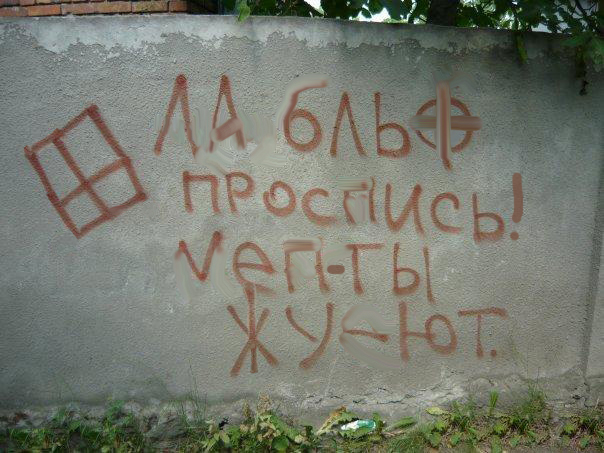 ЛА бЛЬФ
ПРОСПИСЬ!
Меп-ТЫ
ЖУ-ЮТ.